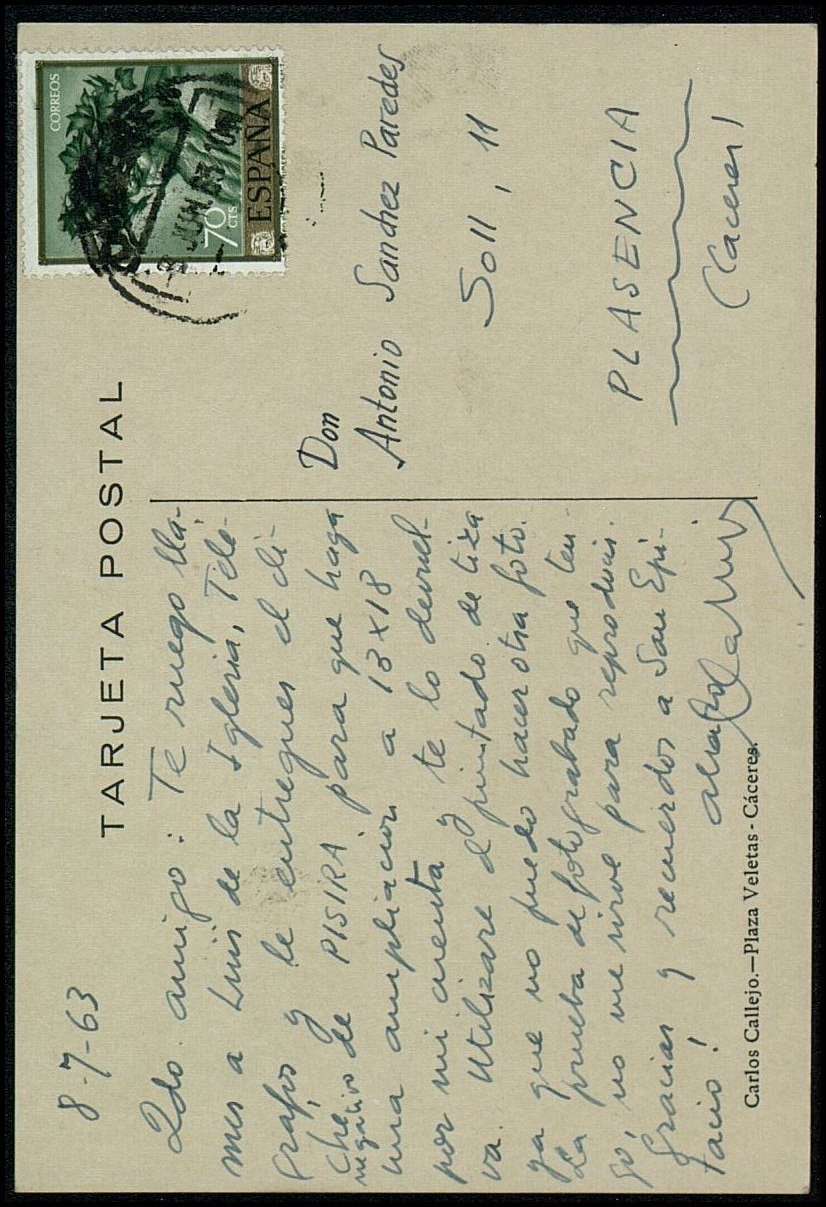 TARJETA POSTAL
8-7-63
Qdo. amigo: Te ruego llá-
mes a Luis de la Iglesia, Telé-
grafos y le entregues el cli-
ché negativo de PISIRA para que haga
una ampliación a 13x18
por mi cuenta y te lo devuel-
va. Utilizaré el pintado de tiza
ya que no puedo hacer otra foto.
La prueba de fotograbado que ten-
go, no me sirve para reproducir.
Gracias y recuerdos a San Epi-
tacio!
Carlos Callejo.—Plaza Veletas - Cáceres.
CORREOS
70 CTS
ESPAÑA
Don
Antonio Sanchez Paredes
Soll, 11
PLASENCIA
(Caceres)